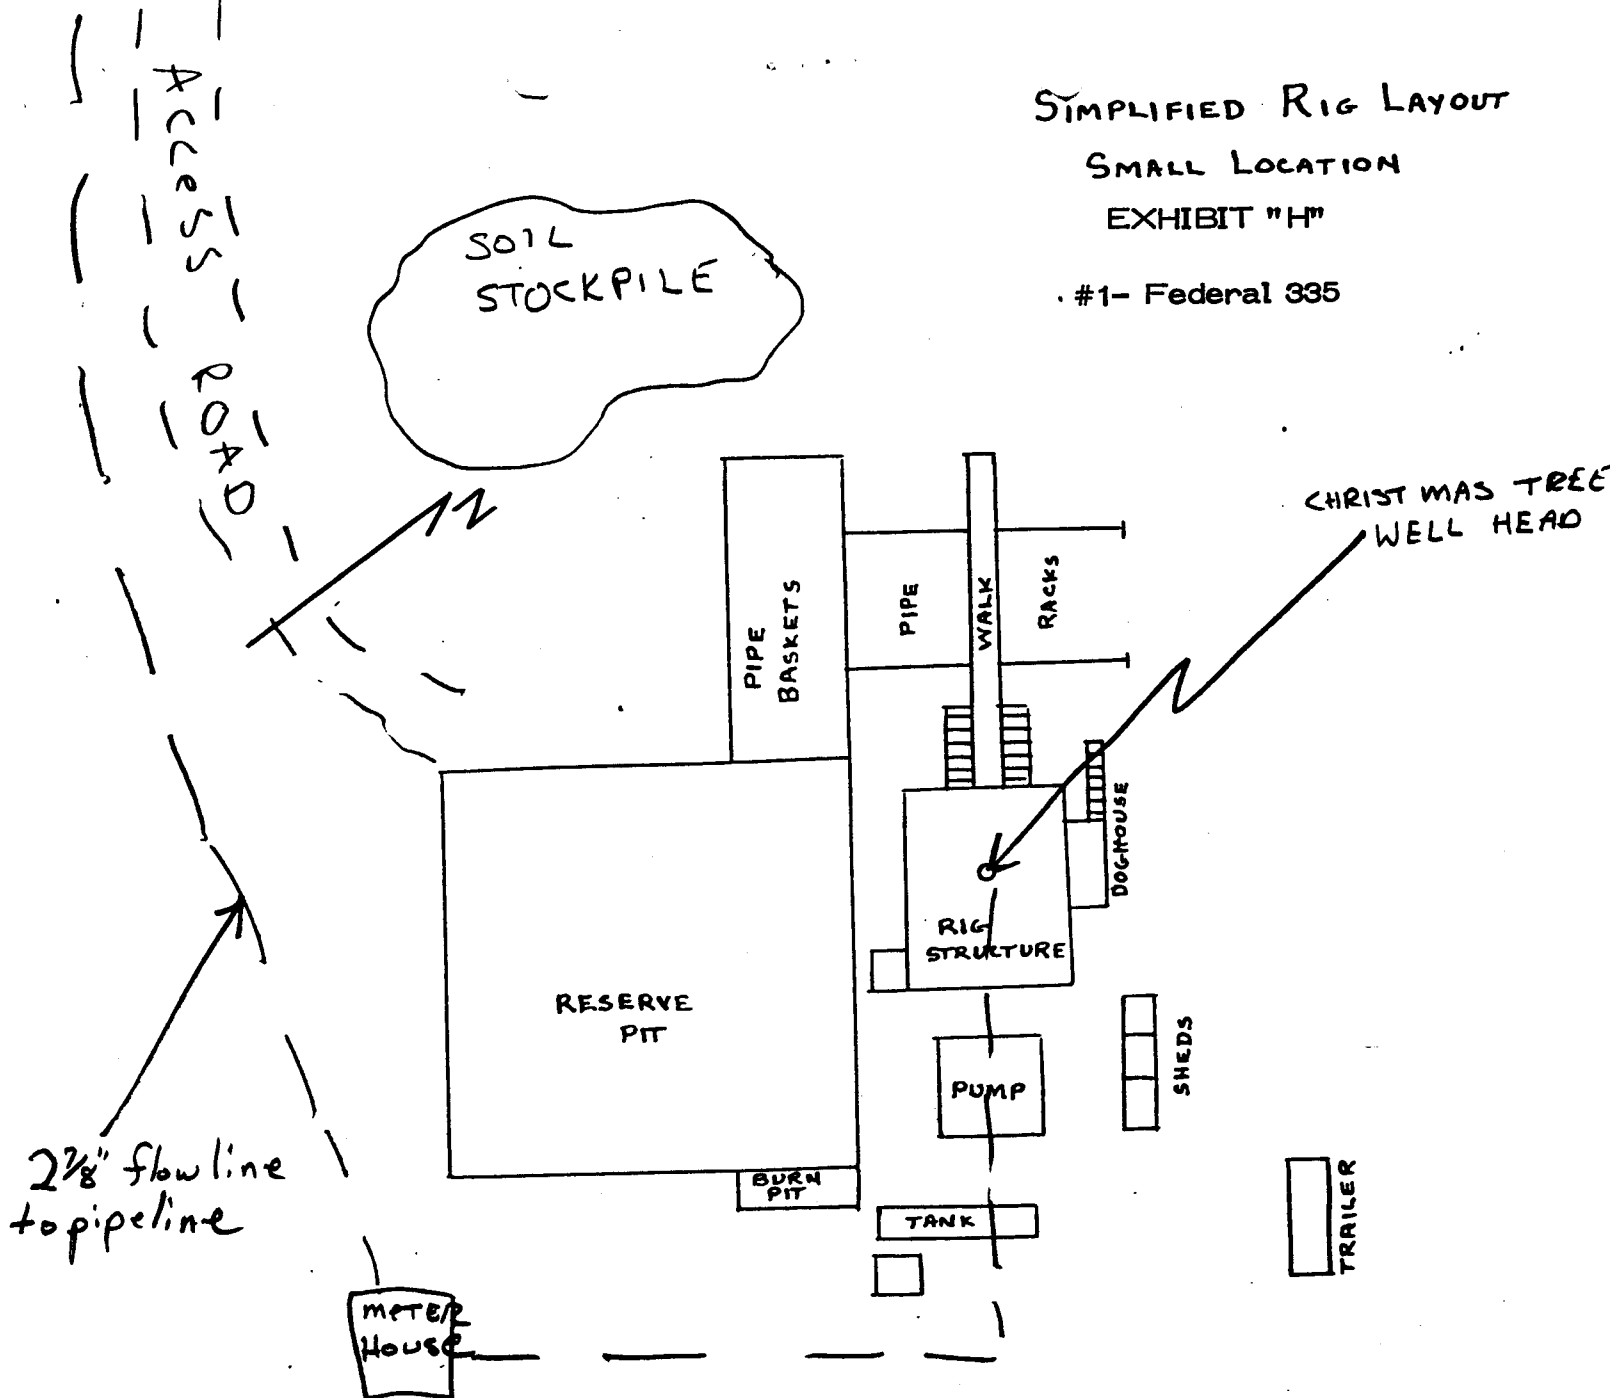 SIMPLIFIED RIG LAYOUT
SMALL LOCATION
EXHIBIT "H"
#1- Federal 335
ACCESS ROAD
SOIL
STOCKPILE
N
CHRISTMAS TREE
WELL HEAD
PIPE
BASKETS
PIPE
WALK
RACKS
DOGHOUSE
RIG
STRUCTURE
RESERVE
PIT
PUMP
SHEDS
BURN
PIT
TANK
TRAILER
2 7/8" flow line
to pipeline
METER
HOUSE